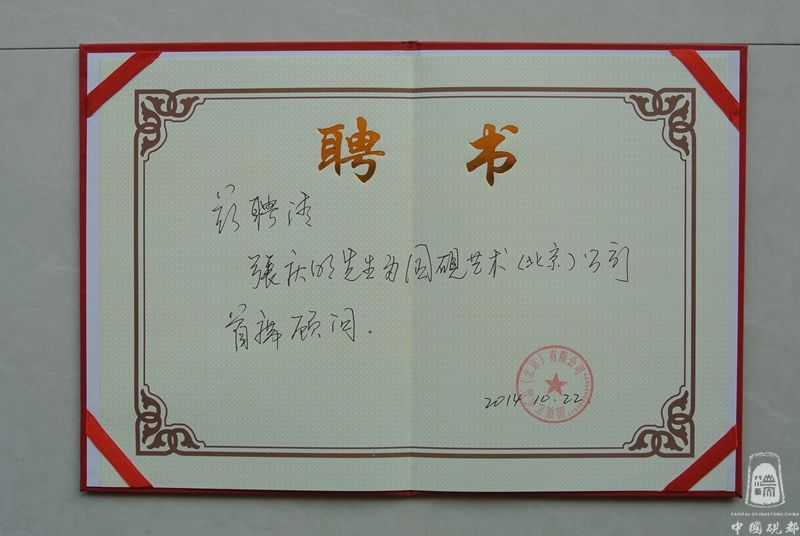 聘书
兹聘请
张庆明先生为国砚艺术(北京)公司
首席顾问。
2014.10.22.
国砚艺术(北京)有限公司
CAPITAL OF INKSTONE, CHINA
中國硯都